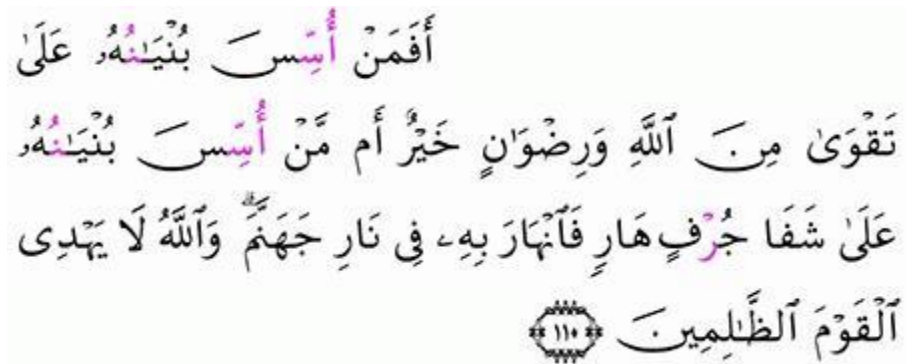 أَفَمَنْ أُسِّسَ بُنْيَـٰنُهُۥ عَلَىٰ
تَقْوَىٰ مِنَ ٱللَّهِ وَرِضْوَٰنٍ خَيْرٌ أَم مَّنْ أُسِّسَ بُنْيَـٰنُهُۥ
عَلَىٰ شَفَا جُرْفٍ هَارٍ فَٱنْهَارَ بِهِۦ فِى نَارِ جَهَنَّمَ ۗ وَٱللَّهُ لَا يَهْدِى
ٱلْقَوْمَ ٱلظَّـٰلِمِينَ ١١٠